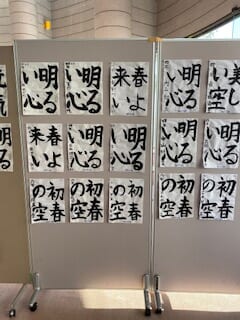 明る
い心
明る
い心
春よ
来い
春よ
来い
明る
い心
明る
い心
初春
の空
初春
の空
初春
の空
明る
い心
美し
い空
明る
い心
明る
い心
初春
の空
初春
の空
明る